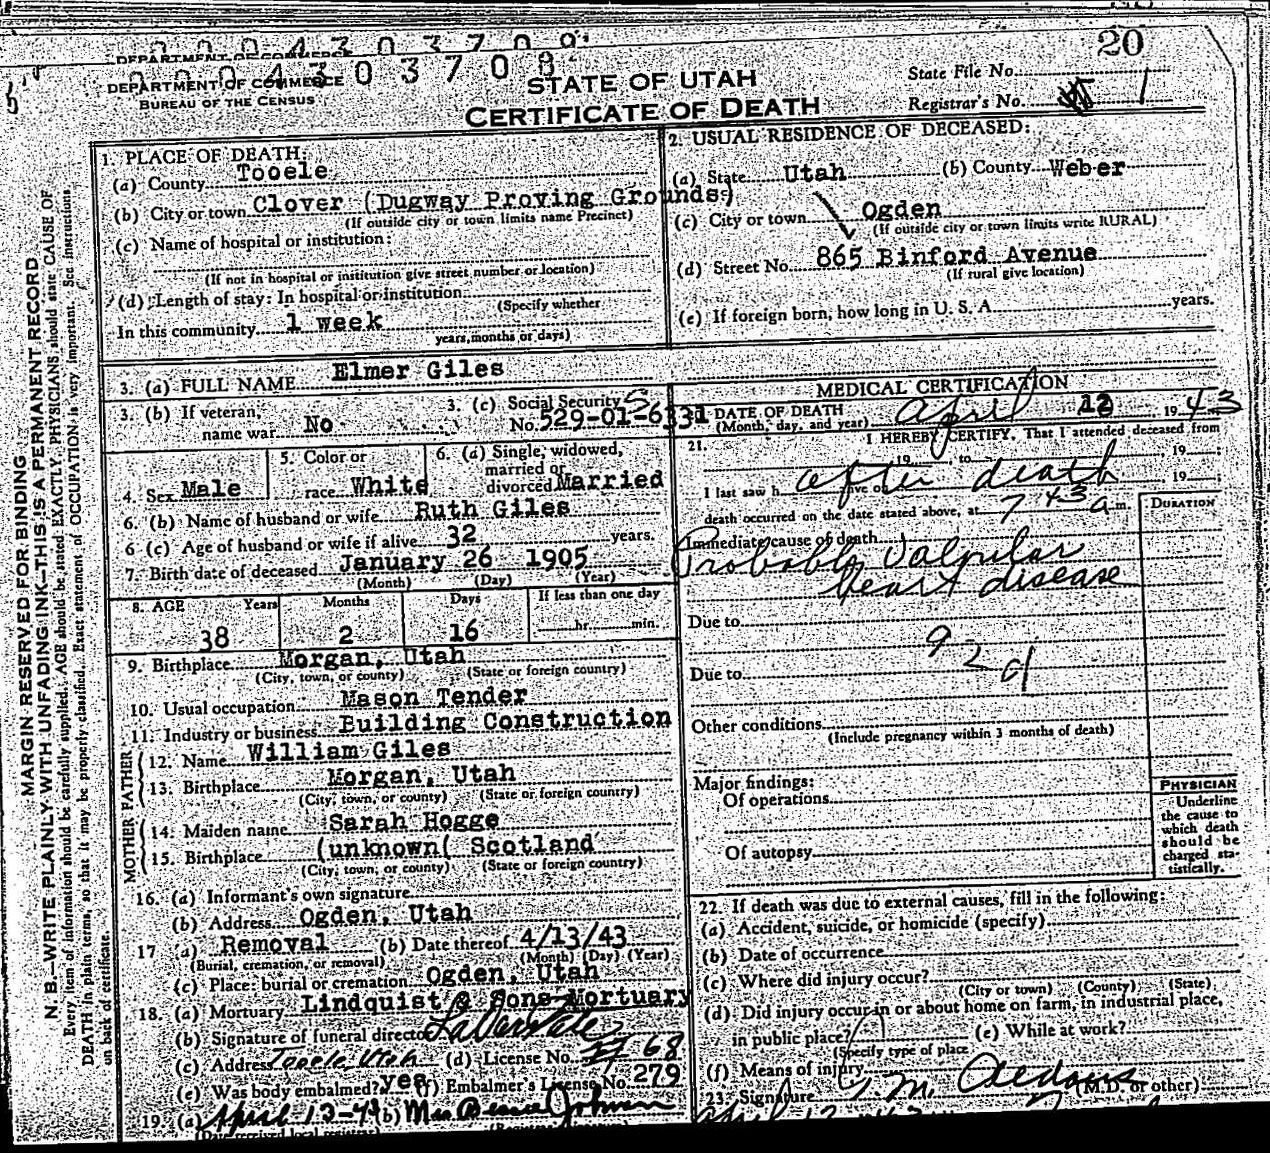 20
DEPARTMENT OF COMMERCE
0 0 0 4 3 0 3 7 0 9
DEPARTMENT OF COMMERCE
BUREAU OF THE CENSUS
STATE OF UTAH
CERTIFICATE OF DEATH
State File No.
Registrar's No. 1
MARGIN RESERVED FOR BINDING
N. B.—WRITE PLAINLY WITH UNFADING INK—THIS IS A PERMANENT RECORD
Every item of information should be carefully supplied. AGE should be stated EXACTLY. PHYSICIANS should state CAUSE OF
DEATH in plain terms, so that it may be properly classified. Exact statement of OCCUPATION is very important. See instructions
on back of certificate.
1. PLACE OF DEATH:
(a) County Tooele
(b) City or town Clover (Dugway Proving Grounds)
(If outside city or town limits name Precinct)
(c) Name of hospital or institution:
(If not in hospital or institution give street number or location)
(d) Length of stay: In hospital or institution
(Specify whether
In this community 1 week
years, months or days)
2. USUAL RESIDENCE OF DECEASED:
(a) State Utah (b) County Weber
(c) City or town Ogden
(If outside city or town limits write RURAL)
(d) Street No. 865 Binford Avenue
(If rural give location)
(e) If foreign born, how long in U. S. A. years.
3. (a) FULL NAME Elmer Giles
3. (b) If veteran, name war No
3. (c) Social Security No. 529-01-6331
4. Sex Male
5. Color or race White
6. (a) Single, widowed, married or divorced Married
6. (b) Name of husband or wife Ruth Giles
6 (c) Age of husband or wife if alive 32 years.
7. Birth date of deceased January 26 1905
(Month) (Day) (Year)
8. AGE Years Months Days If less than one day
38 2 16 hr. min.
9. Birthplace Morgan, Utah
(City, town, or county) (State or foreign country)
10. Usual occupation Mason Tender
11. Industry or business Building Construction
FATHER
12. Name William Giles
13. Birthplace Morgan, Utah
(City, town, or county) (State or foreign country)
MOTHER
14. Maiden name Sarah Hogge
15. Birthplace (unknown( Scotland
(City, town, or county) (State or foreign country)
16. (a) Informant's own signature
(b) Address Ogden, Utah
17 (a) Removal (b) Date thereof 4/13/43
(Burial, cremation, or removal) (Month) (Day) (Year)
(c) Place: burial or cremation Ogden, Utah
18. (a) Mortuary Lindquist & Sons Mortuary
(b) Signature of funeral director
(c) Address Tooele, Utah (d) License No. 68
(e) Was body embalmed? yes (f) Embalmer's License No. 279
19. (a) April 13-43 (b) Mrs Johnson
MEDICAL CERTIFICATION
20. DATE OF DEATH April 12 1943
(Month, day, and year)
21. I HEREBY CERTIFY, That I attended deceased from
19 , to , 19 ;
I last saw h alive on after death , 19 ;
death occurred on the date stated above, at 7 43 a m.
DURATION
Immediate cause of death
Probably Valvular
heart disease
Due to
92d
Due to
Other conditions
(Include pregnancy within 3 months of death)
Major findings:
Of operations
Of autopsy
PHYSICIAN
Underline
the cause to
which death
should be
charged sta-
tistically.
22. If death was due to external causes, fill in the following:
(a) Accident, suicide, or homicide (specify)
(b) Date of occurrence
(c) Where did injury occur?
(City or town) (County) (State)
(d) Did injury occur in or about home on farm, in industrial place,
in public place? (e) While at work?
(Specify type of place
(f) Means of injury
23. Signature (M.D. or other)